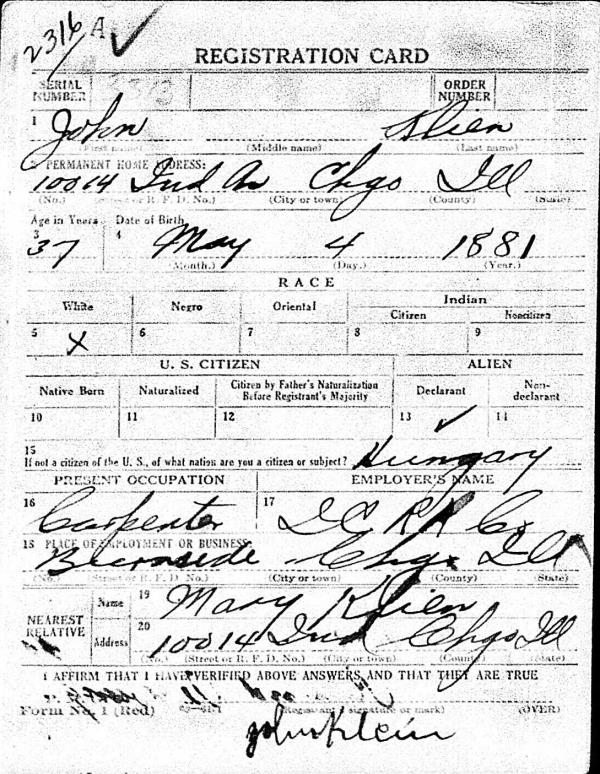 2316 A ✓
REGISTRATION CARD
SERIAL NUMBER
ORDER NUMBER
1 John Klien
(First name) (Middle name) (Last name)
2 PERMANENT HOME ADDRESS:
10014 Ind Av Chgo Ill
(No.) (Street or R. F. D. No.) (City or town) (County) (State)
Age in Years Date of Birth
3 37 4 May 4 1881
(Month.) (Day.) (Year.)
RACE
White Negro Oriental Indian
Citizen Noncitizen
5 X 6 7 8 9
U. S. CITIZEN ALIEN
Native Born Naturalized Citizen by Father's Naturalization Before Registrant's Majority Declarant Non-declarant
10 11 12 13 ✓ 14
15
If not a citizen of the U. S., of what nation are you a citizen or subject? Hungary
PRESENT OCCUPATION EMPLOYER'S NAME
16 Carpenter 17 I C RR Co
18 PLACE OF EMPLOYMENT OR BUSINESS:
Burnside Chgo Ill
(No.) (Street or R. F. D. No.) (City or town) (County) (State)
NEAREST RELATIVE Name 19 Mary Klien
Address 20 10014 Ind Chgo Ill
(No.) (Street or R. F. D. No.) (City or town) (County) (State)
I AFFIRM THAT I HAVE VERIFIED ABOVE ANSWERS AND THAT THEY ARE TRUE
Form No. 1 (Red) (Registrant's signature or mark) (OVER)
John Klein